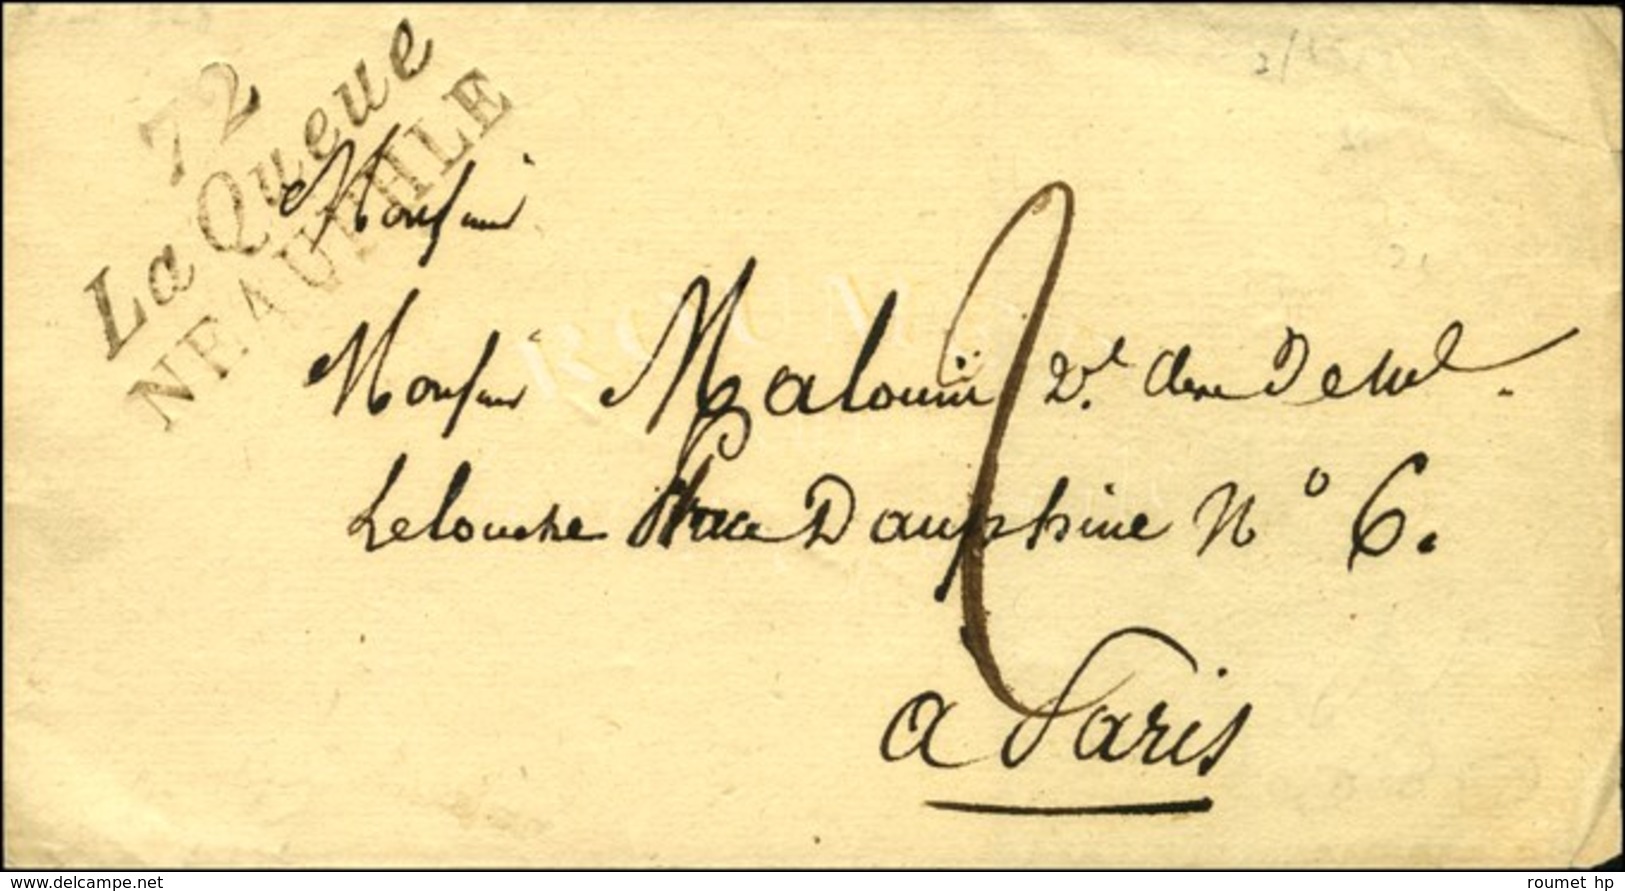 72
La Queue
NEAUPHLE
Monsieur
Monsieur Malouin
Lelouche Rue Dauphine N° 6.
a Paris
© delcampe.net
roumet hp